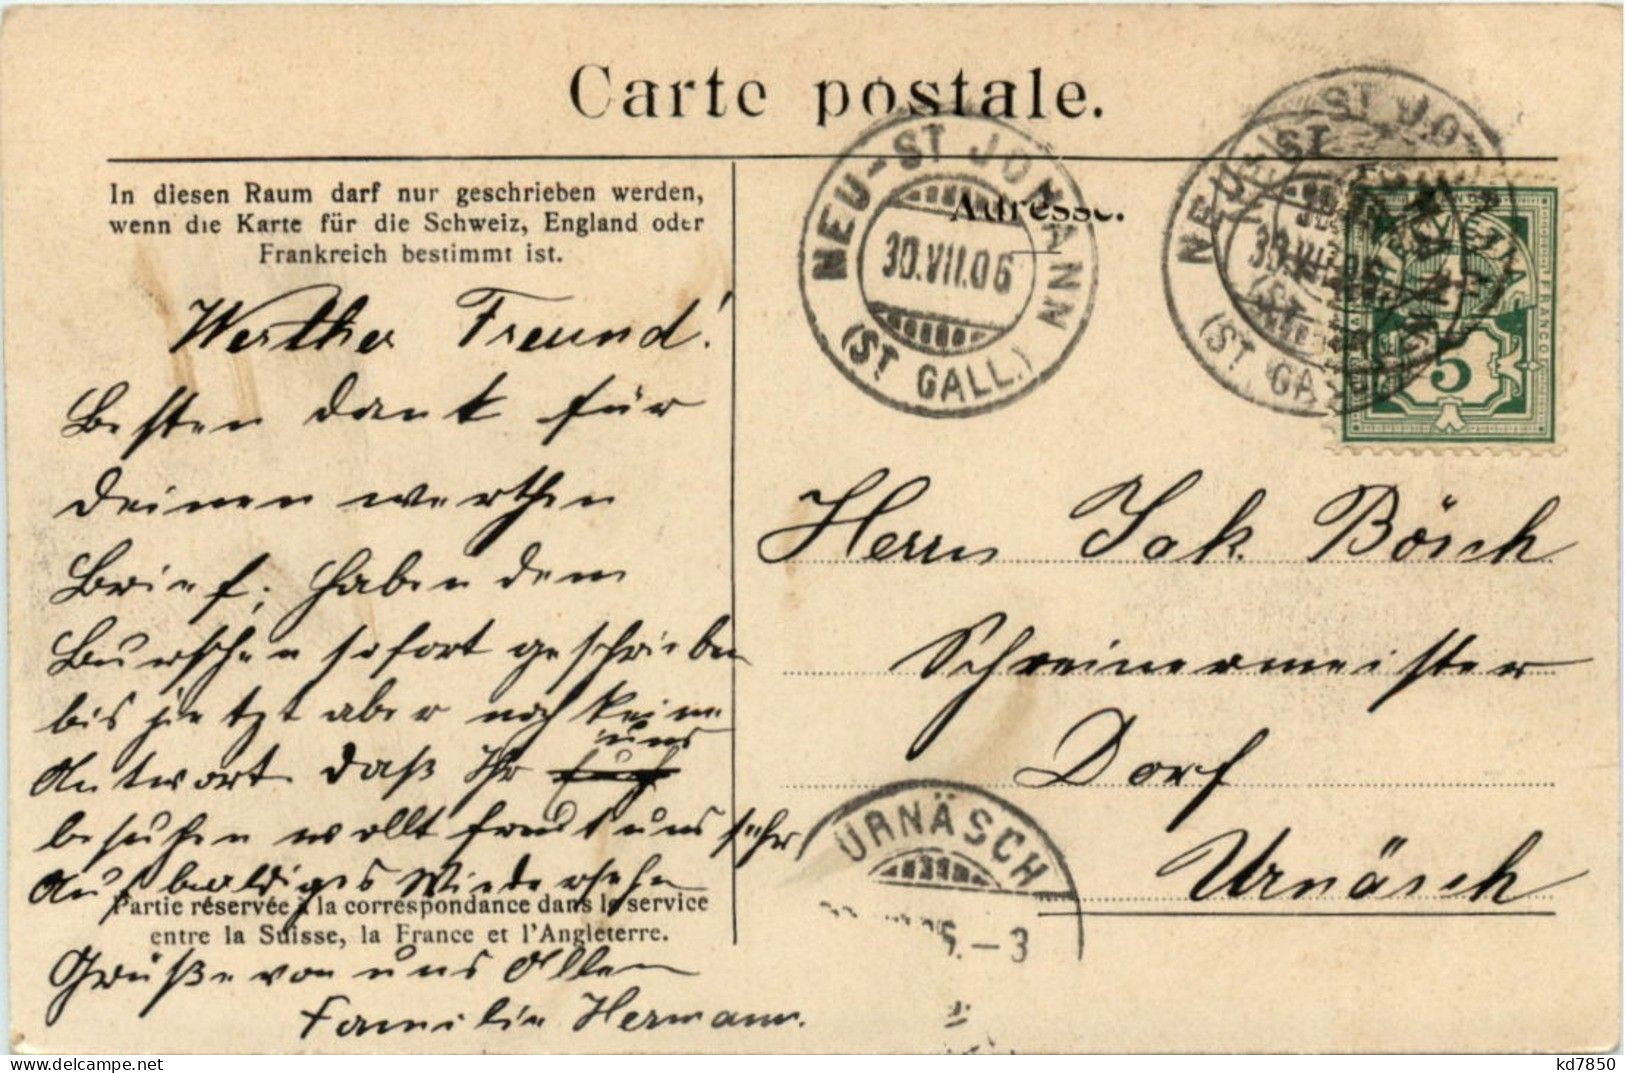 Carte postale.
In diesen Raum darf nur geschrieben werden,
wenn die Karte für die Schweiz, England oder
Frankreich bestimmt ist.
Adresse.
NEU-ST JOHANN
30.VII.06
(ST GALL.)
NEU-ST JO
30.VII.06
(ST GA
HELVETIA
FRANCO
5
Werther Freund!
Besten Dank für
Deinen werthen
Brief; haben dem
Burschen sofort geschrieben
bis jetzt aber noch keine
Antwort. daß Ihr uns
besuchen wollt freut uns sehr
Auf baldiges Wiedersehn
Partie réservée à la correspondance dans le service
entre la Suisse, la France et l'Angleterre.
Grüße von uns Allen
Familie Hermann.
Herrn Jak. Bösch
Schreinermeister
Dorf
Urnäsch
URNÄSCH
6.-3
kd7850